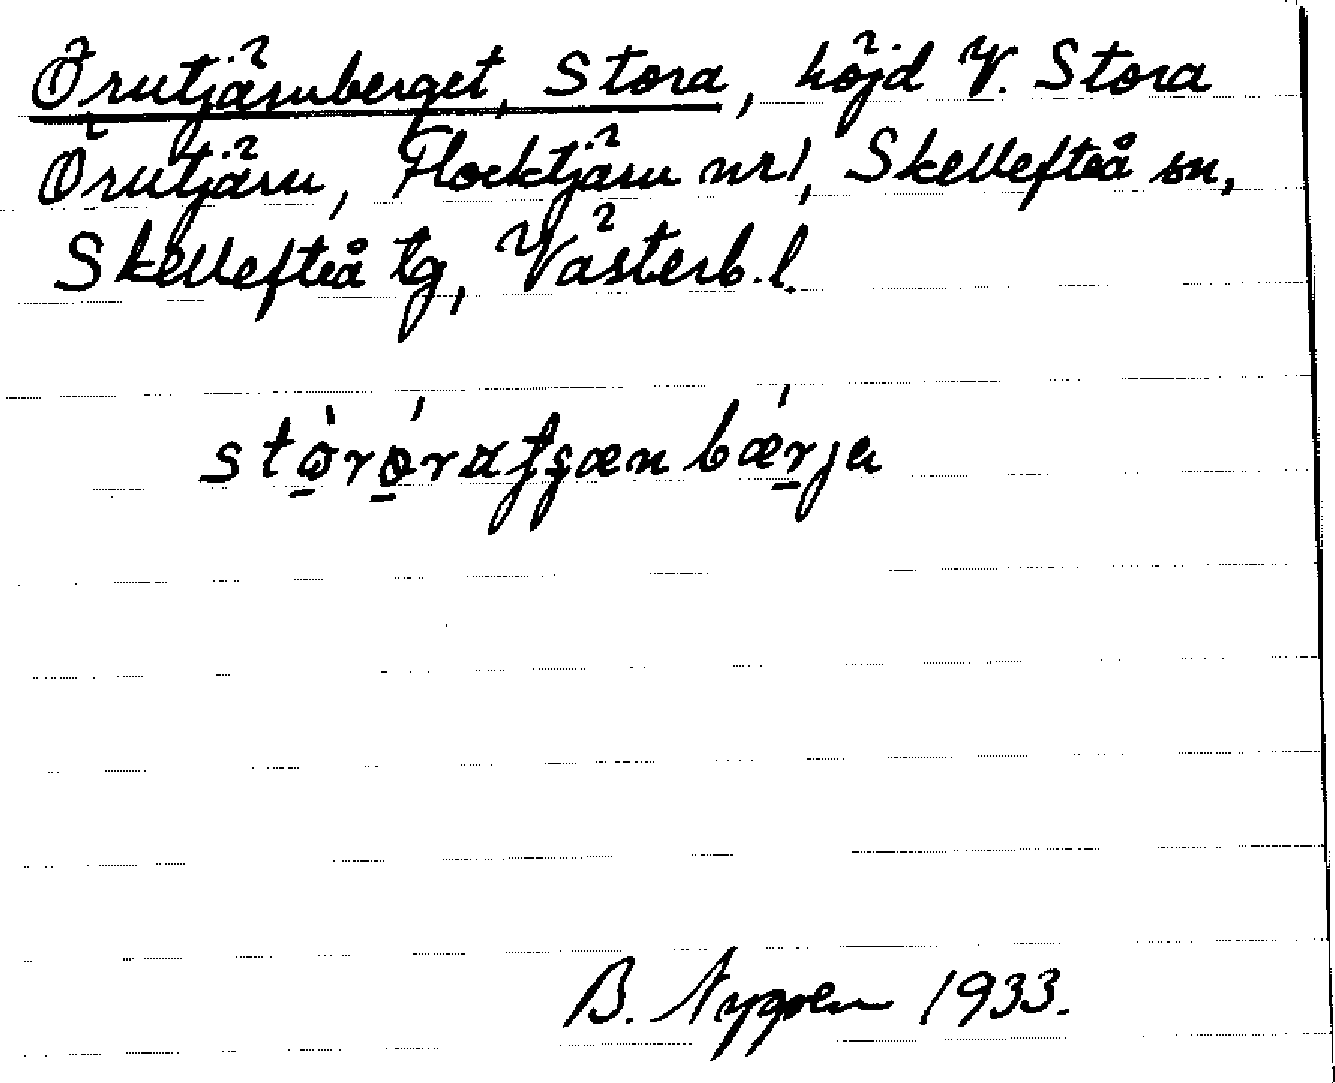 Örutjärnberget, Stora, höjd V. Stora
Örutjärn, Flocktjärn nr 1, Skellefteå sn,
Skellefteå tg, Västerb. l.
B. Nygren 1933.